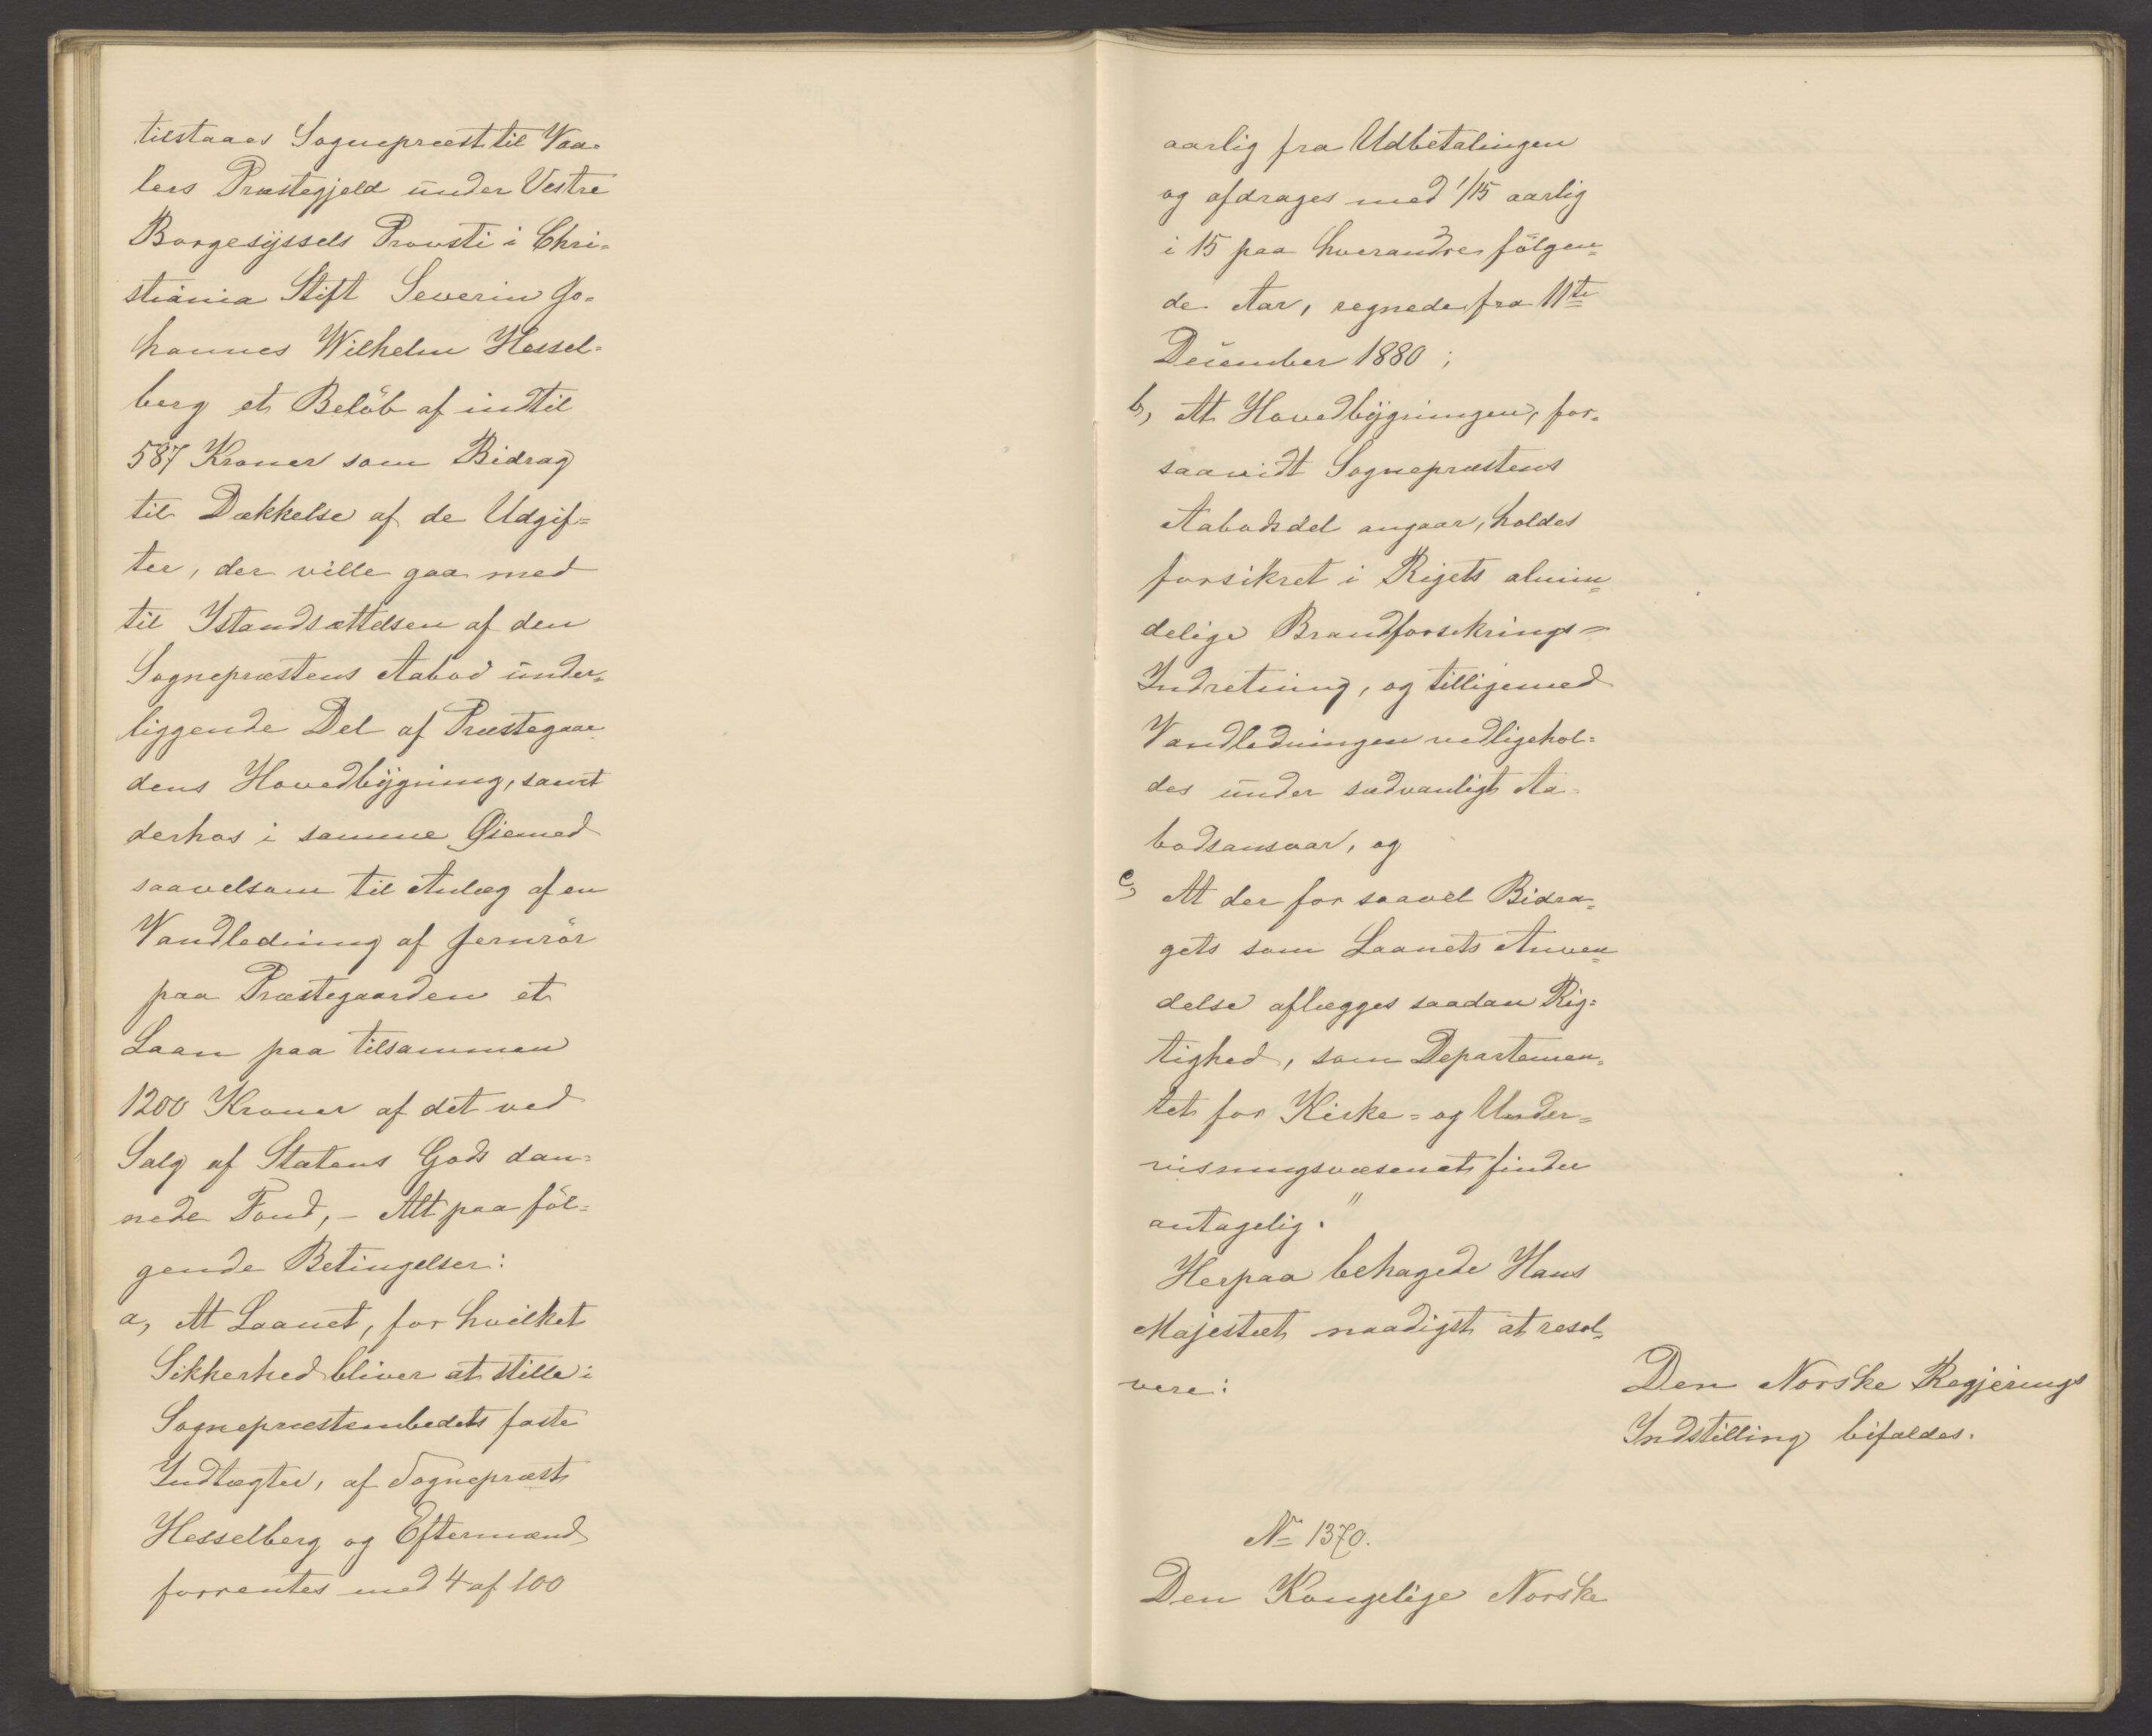 tilstaaes Sognepræst til Vaa-
lers Præstegjeld under Vestre
Borgesyssels Provsti i Chri-
stiania Stift Severin Jo-
hannes Wilhelm Hessel-
berg et Beløb af indtil
587 Kroner som Bidrag
til Dækkelse af de Udgif=
ter, der ville gaa med
til Istandsættelsen af den
Sognepræstens Aabod under-
liggende Del af Præstegaar-
dens Hovedbygning, samt
derhos i samme Øiemed
saavelsom til Anlæg af en
Vandledning af Jernrör
paa Præstegaarden et
Laan paa tilsammen
1200 Kroner af det ved
Salg af Statens Gods dan=
nede Fond, - Alt paa föl=
gende Betingelser:
a, At Laanet, for hvilket
Sikkerhed bliver at stille i
Sognepræstembedets faste
Indtægter, af Sognepræst
Hesselberg og Eftermænd
forrentes med 4 af 100
aarlig fra Udbetalingen
og afdrages med 1/15 aarlig
i 15 paa hverandre fölgen=
de Aar, regnede fra 11te
December 1880;
b, At Hovedbygningen, for-
saavidt Sognepræstens
Aabodsdel angaar, holdes
forsikret i Rigets almin=
delige Brandforsikrings=
Indretning, og tilligemed
Vandledningen vedligehol=
des under sædvanligt Aa-
bodsansvar, og
c, At der for saavel Bidra=
gets som Laanets Anven=
delse aflægges saadan Rig=
tighed, som Departemen-
tet for Kirke= og Under=
visningsvæsenet finder
antagelig."
Herpaa behagede Hans
Majestæt naadigst at resol-
vere:
Den Norske Regjerings
Indstilling bifaldes.
No 1370.
Den Kongelige Norske